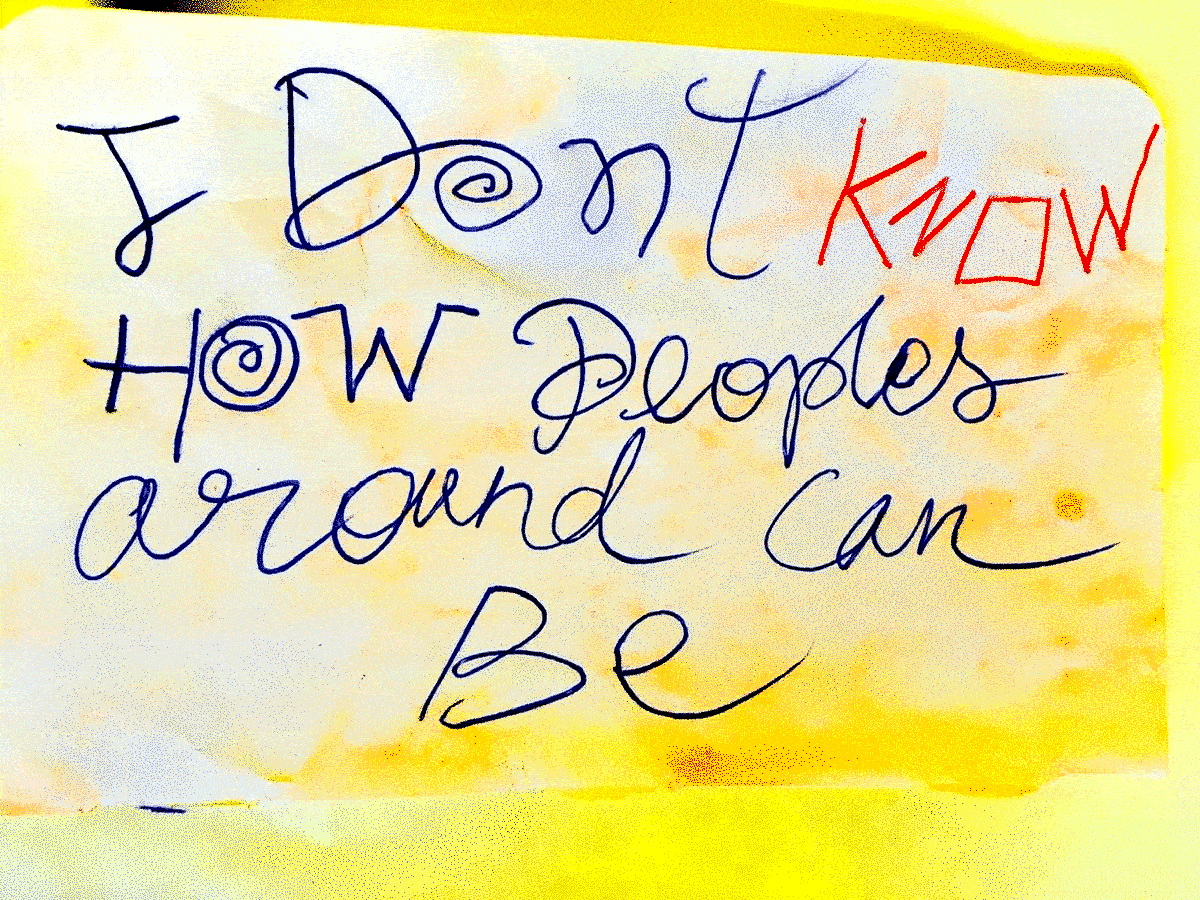 I Dont KNOW
HOW Peoples
around can
Be